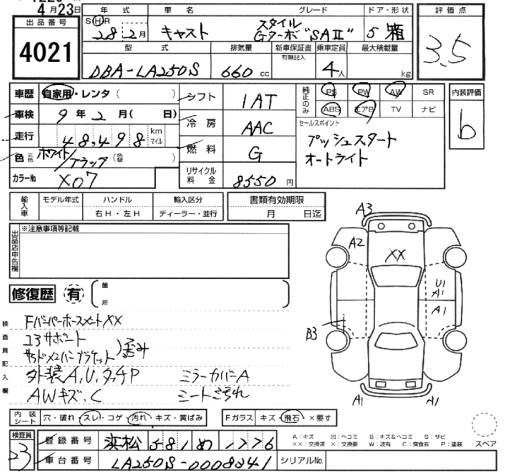 4月23日
出品番号 4021
年式 車名 グレード ドア・形状
S H R 28年2月 キャスト スタイル Gターボ"SAⅡ" 5 箱
型式 排気量 新車保証書 乗車定員 最大積載量
有無記入
DBA-LA250S 660cc 4人 kg
評価点
3.5
車歴 自家用・レンタ( )
シフト 1AT
純正のみ PS PW AW SR
ABS エアB TV ナビ
内装評価
b
車検 9年2月( 日)
冷房 AAC
セールスポイント
プッシュスタート
オートライト
走行 48,498 km マイル
燃料 G
色 ホワイト/ブラック
カラーNo X07
リサイクル料金 8550円
輸入車 モデル年式 ハンドル 輸入区分
右H・左H ディーラー・並行
書類有効期限
月 日迄
出品店申告欄 ※注意事項等記載
修復歴 有 箇所
検査員記入欄
Fバンパーホースメント XX
コアサポート
サイドメンバーブラケット 歪み
外装A,U,タッチP ミラーカバーA
AWキズ,C シートよごれ
A3
A2
XX
U1
A1
B3
A1
A1
内装シート 穴・破れ スレ・コゲ 汚れ キズ・黄ばみ
Fガラス キズ・飛石 ×要す
スペア
検査員 23
登録番号 浜松 581 め 1776
車台番号 LA250S-0008041
シリアルNo.
A:キズ U:ヘコミ B:キズ&ヘコミ S:サビ
XX:交換済 X:要交換 W:波有 C:腐食有 P:塗装